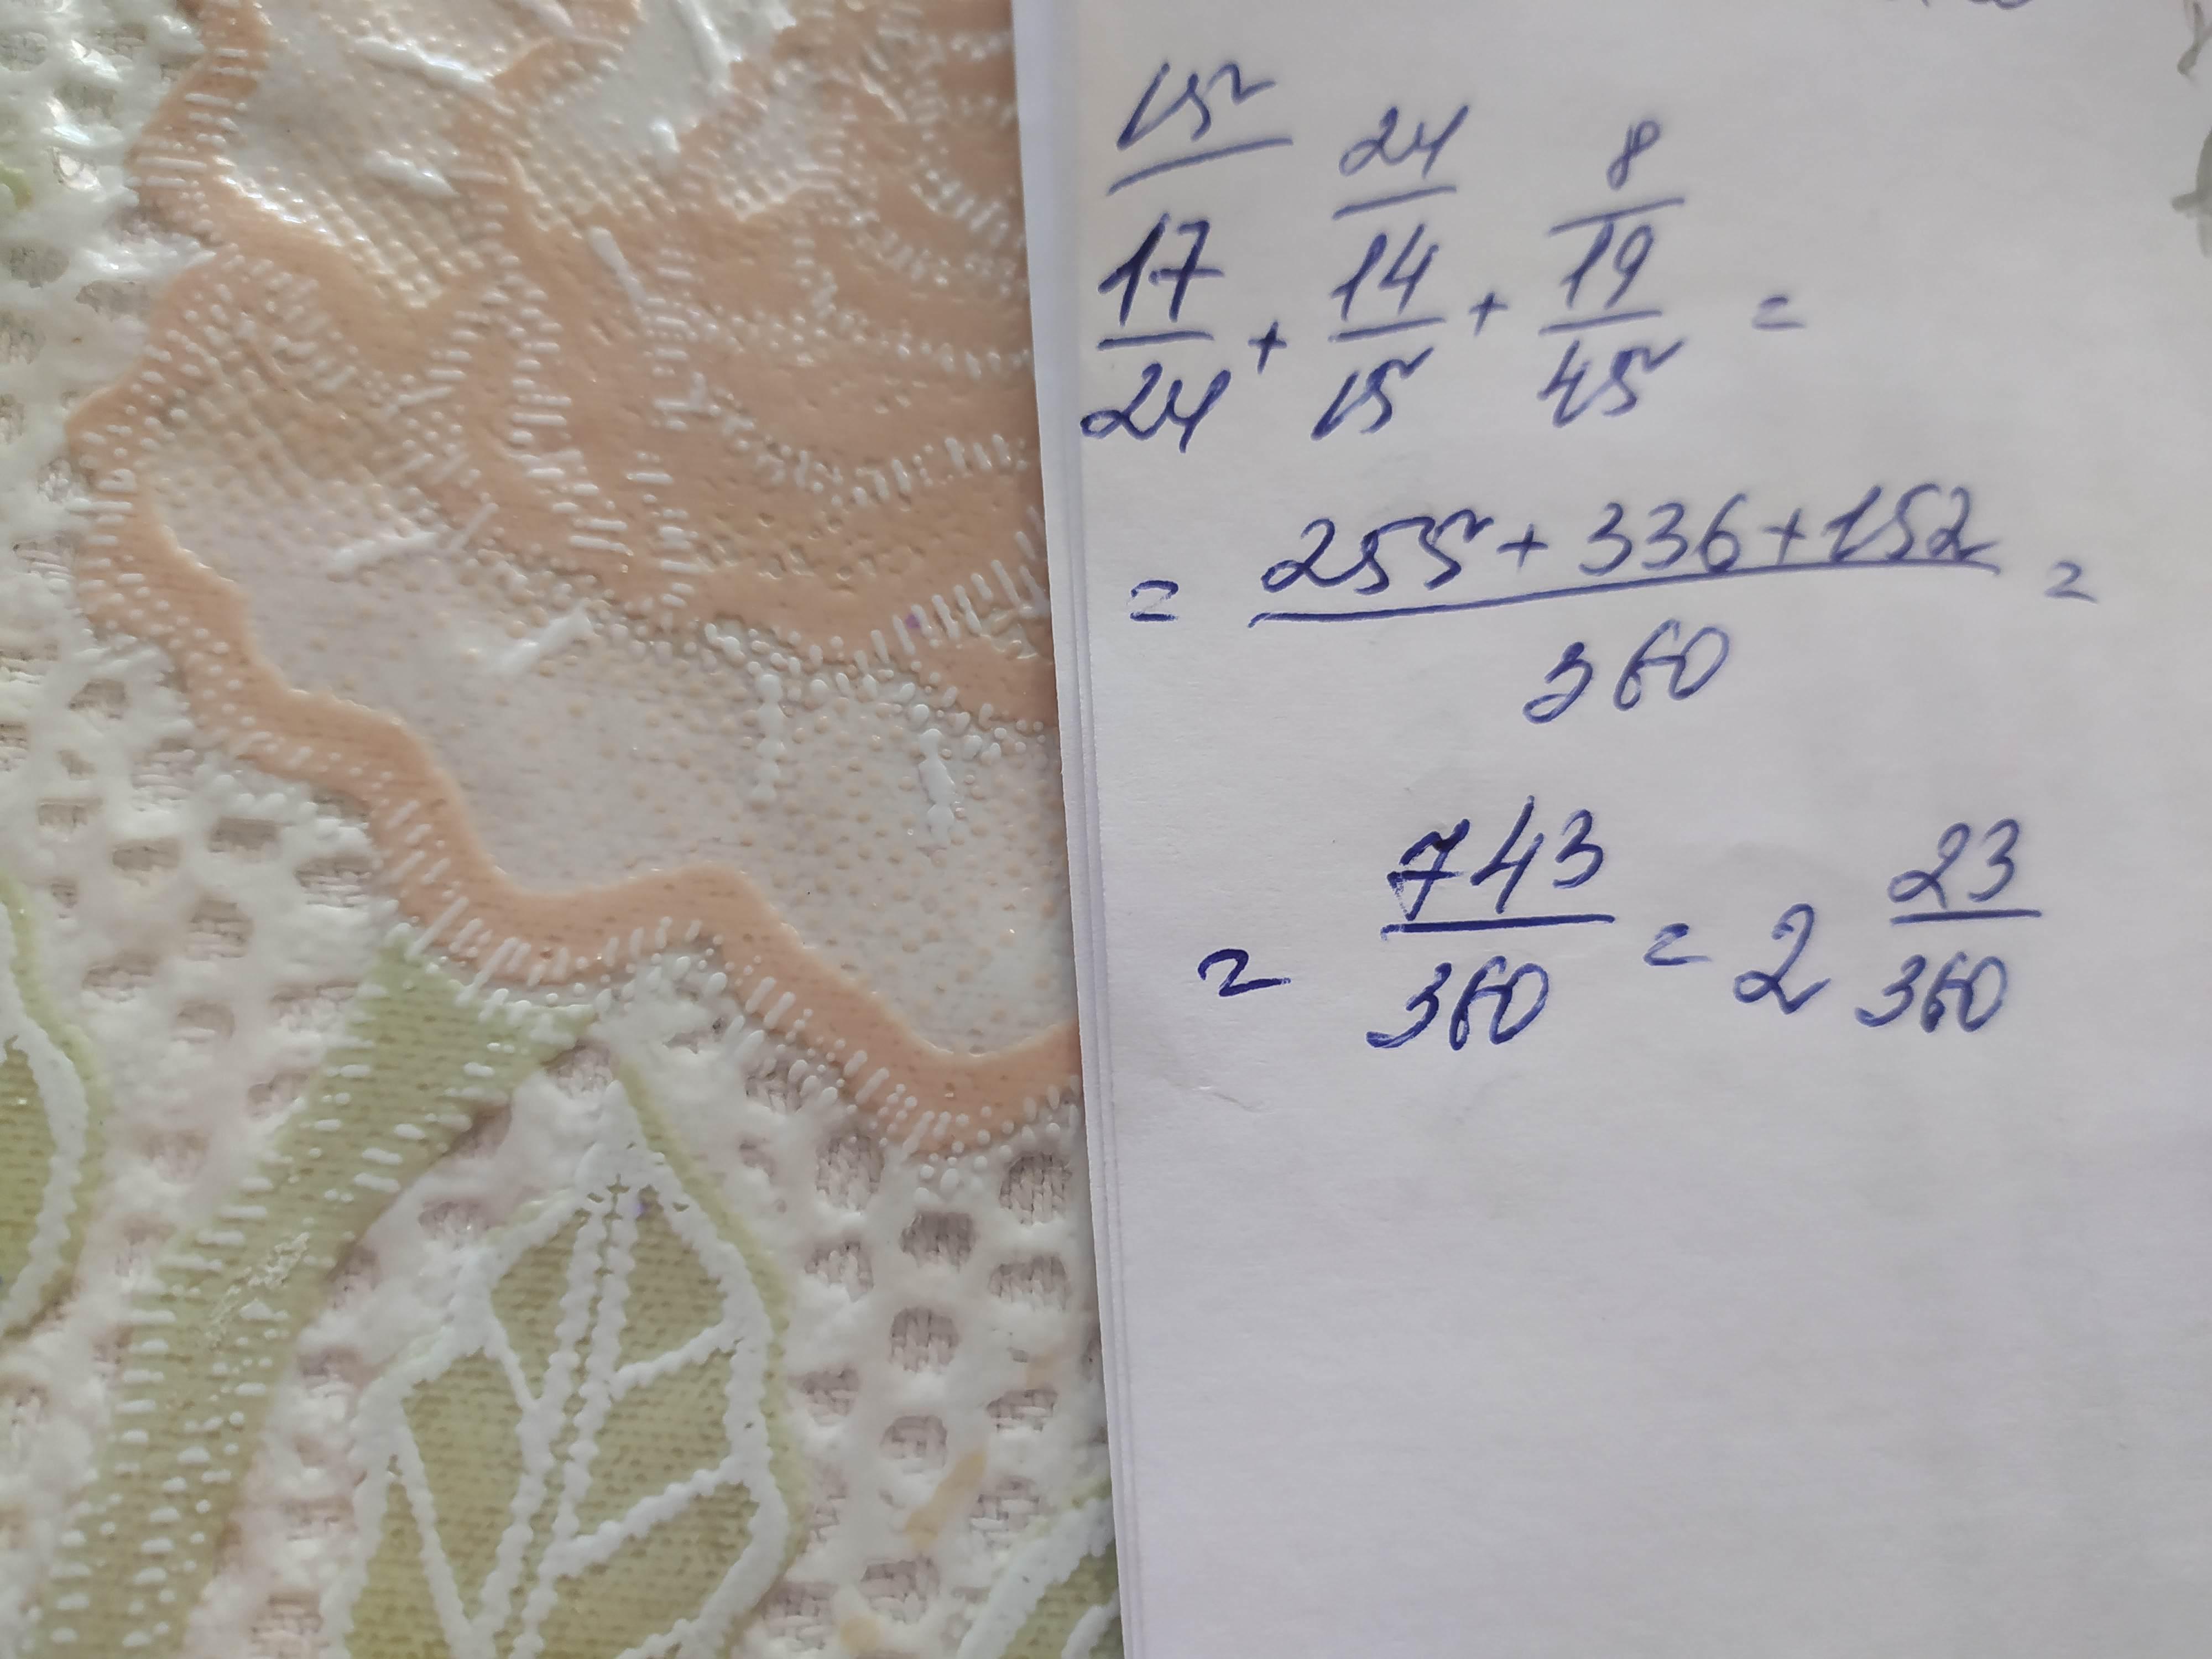 15 24 8
17/24 + 14/15 + 19/45 =
= (255 + 336 + 152)/360 =
= 743/360 = 2 23/360